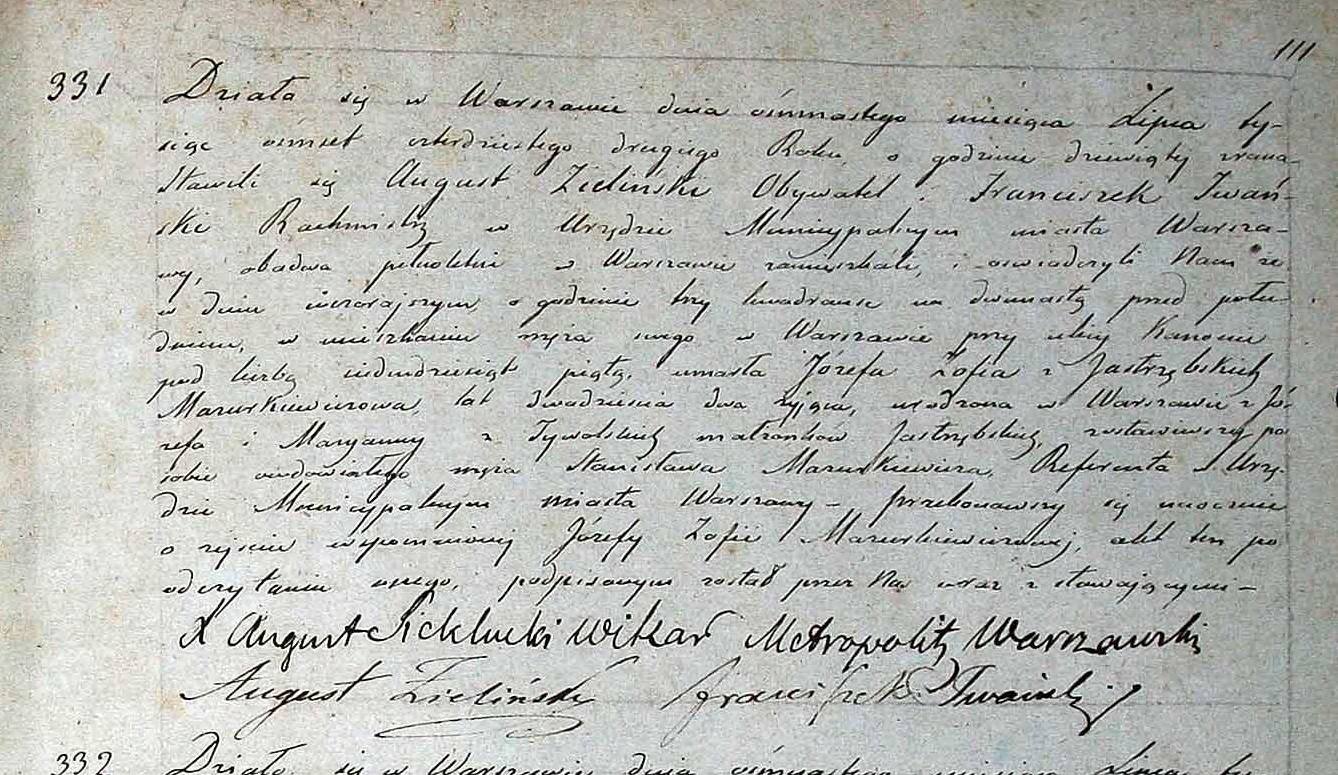 111
331 Działo się w Warszawie dnia ośmnastego miesiąca Lipca ty-
siąc ośmset czterdziestego drugiego Roku, o godzinie dziewiątej zrana
Stawili się August Zieliński Obywatel i Franciszek Iwań-
ski Rachmistrz w Urzędzie Municypalnym miasta Warsza-
wy, obadwa pełnoletni w Warszawie zamieszkali, i oświadczyli Nam że
w dniu wczorajszym o godzinie trzy kwadranse na dwunastą przed połu-
dniem, w mieszkaniu męża swego w Warszawie przy ulicy Kanonie
pod liczbą siedmdziesiąt piątą, umarła Józefa Zofia z Jastrzębskich
Mazurkiewiczowa, lat dwadzieścia dwa żyjąca, urodzona w Warszawie z Jó-
zefa i Maryanny z Tywolskich małżonków Jastrzębskich, zostawiwszy po
sobie owdowiałego męża Stanisława Mazurkiewicza, Referenta w Urzę-
dzie Municypalnym miasta Warszawy – Przekonawszy się naocznie
o zejściu wspomnionej Józefy Zofii Mazurkiewiczowej, akt ten po
odczytaniu onego, podpisanym został przez Nas wraz z stawającymi –
X August Sieklucki Wikar Metropolity Warszawski
August Zieliński Franciszek Iwański
332 Działo się w Warszawie dnia ośmnastego miesiąca Lipca ty-